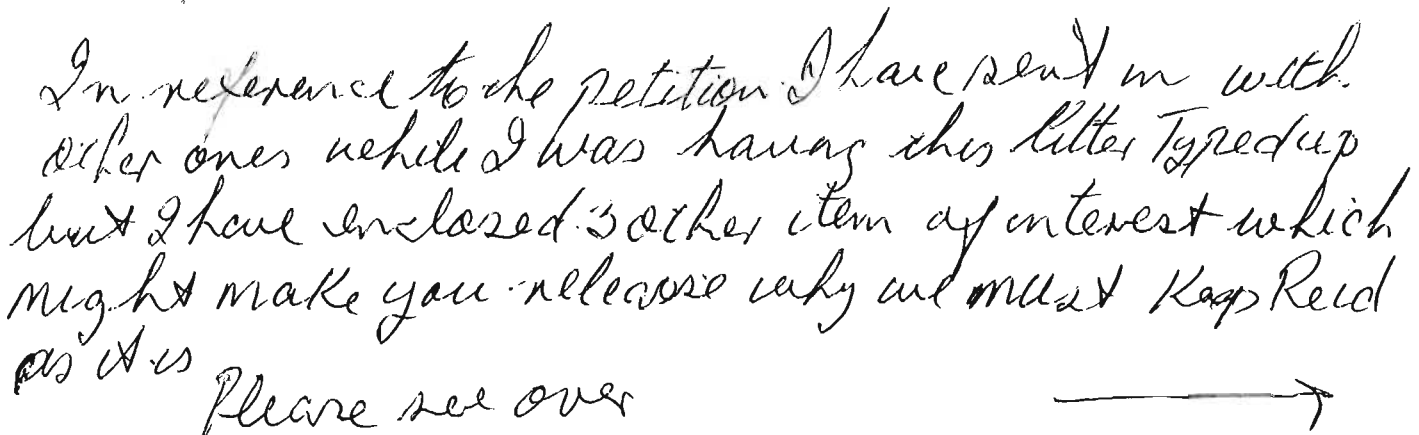 In reference to the petition I have sent in with
other ones while I was having this litter Typed up
but I have enclosed 3 other item of interest which
might make you relearse why we must Keep Reid
as it is
Please see over